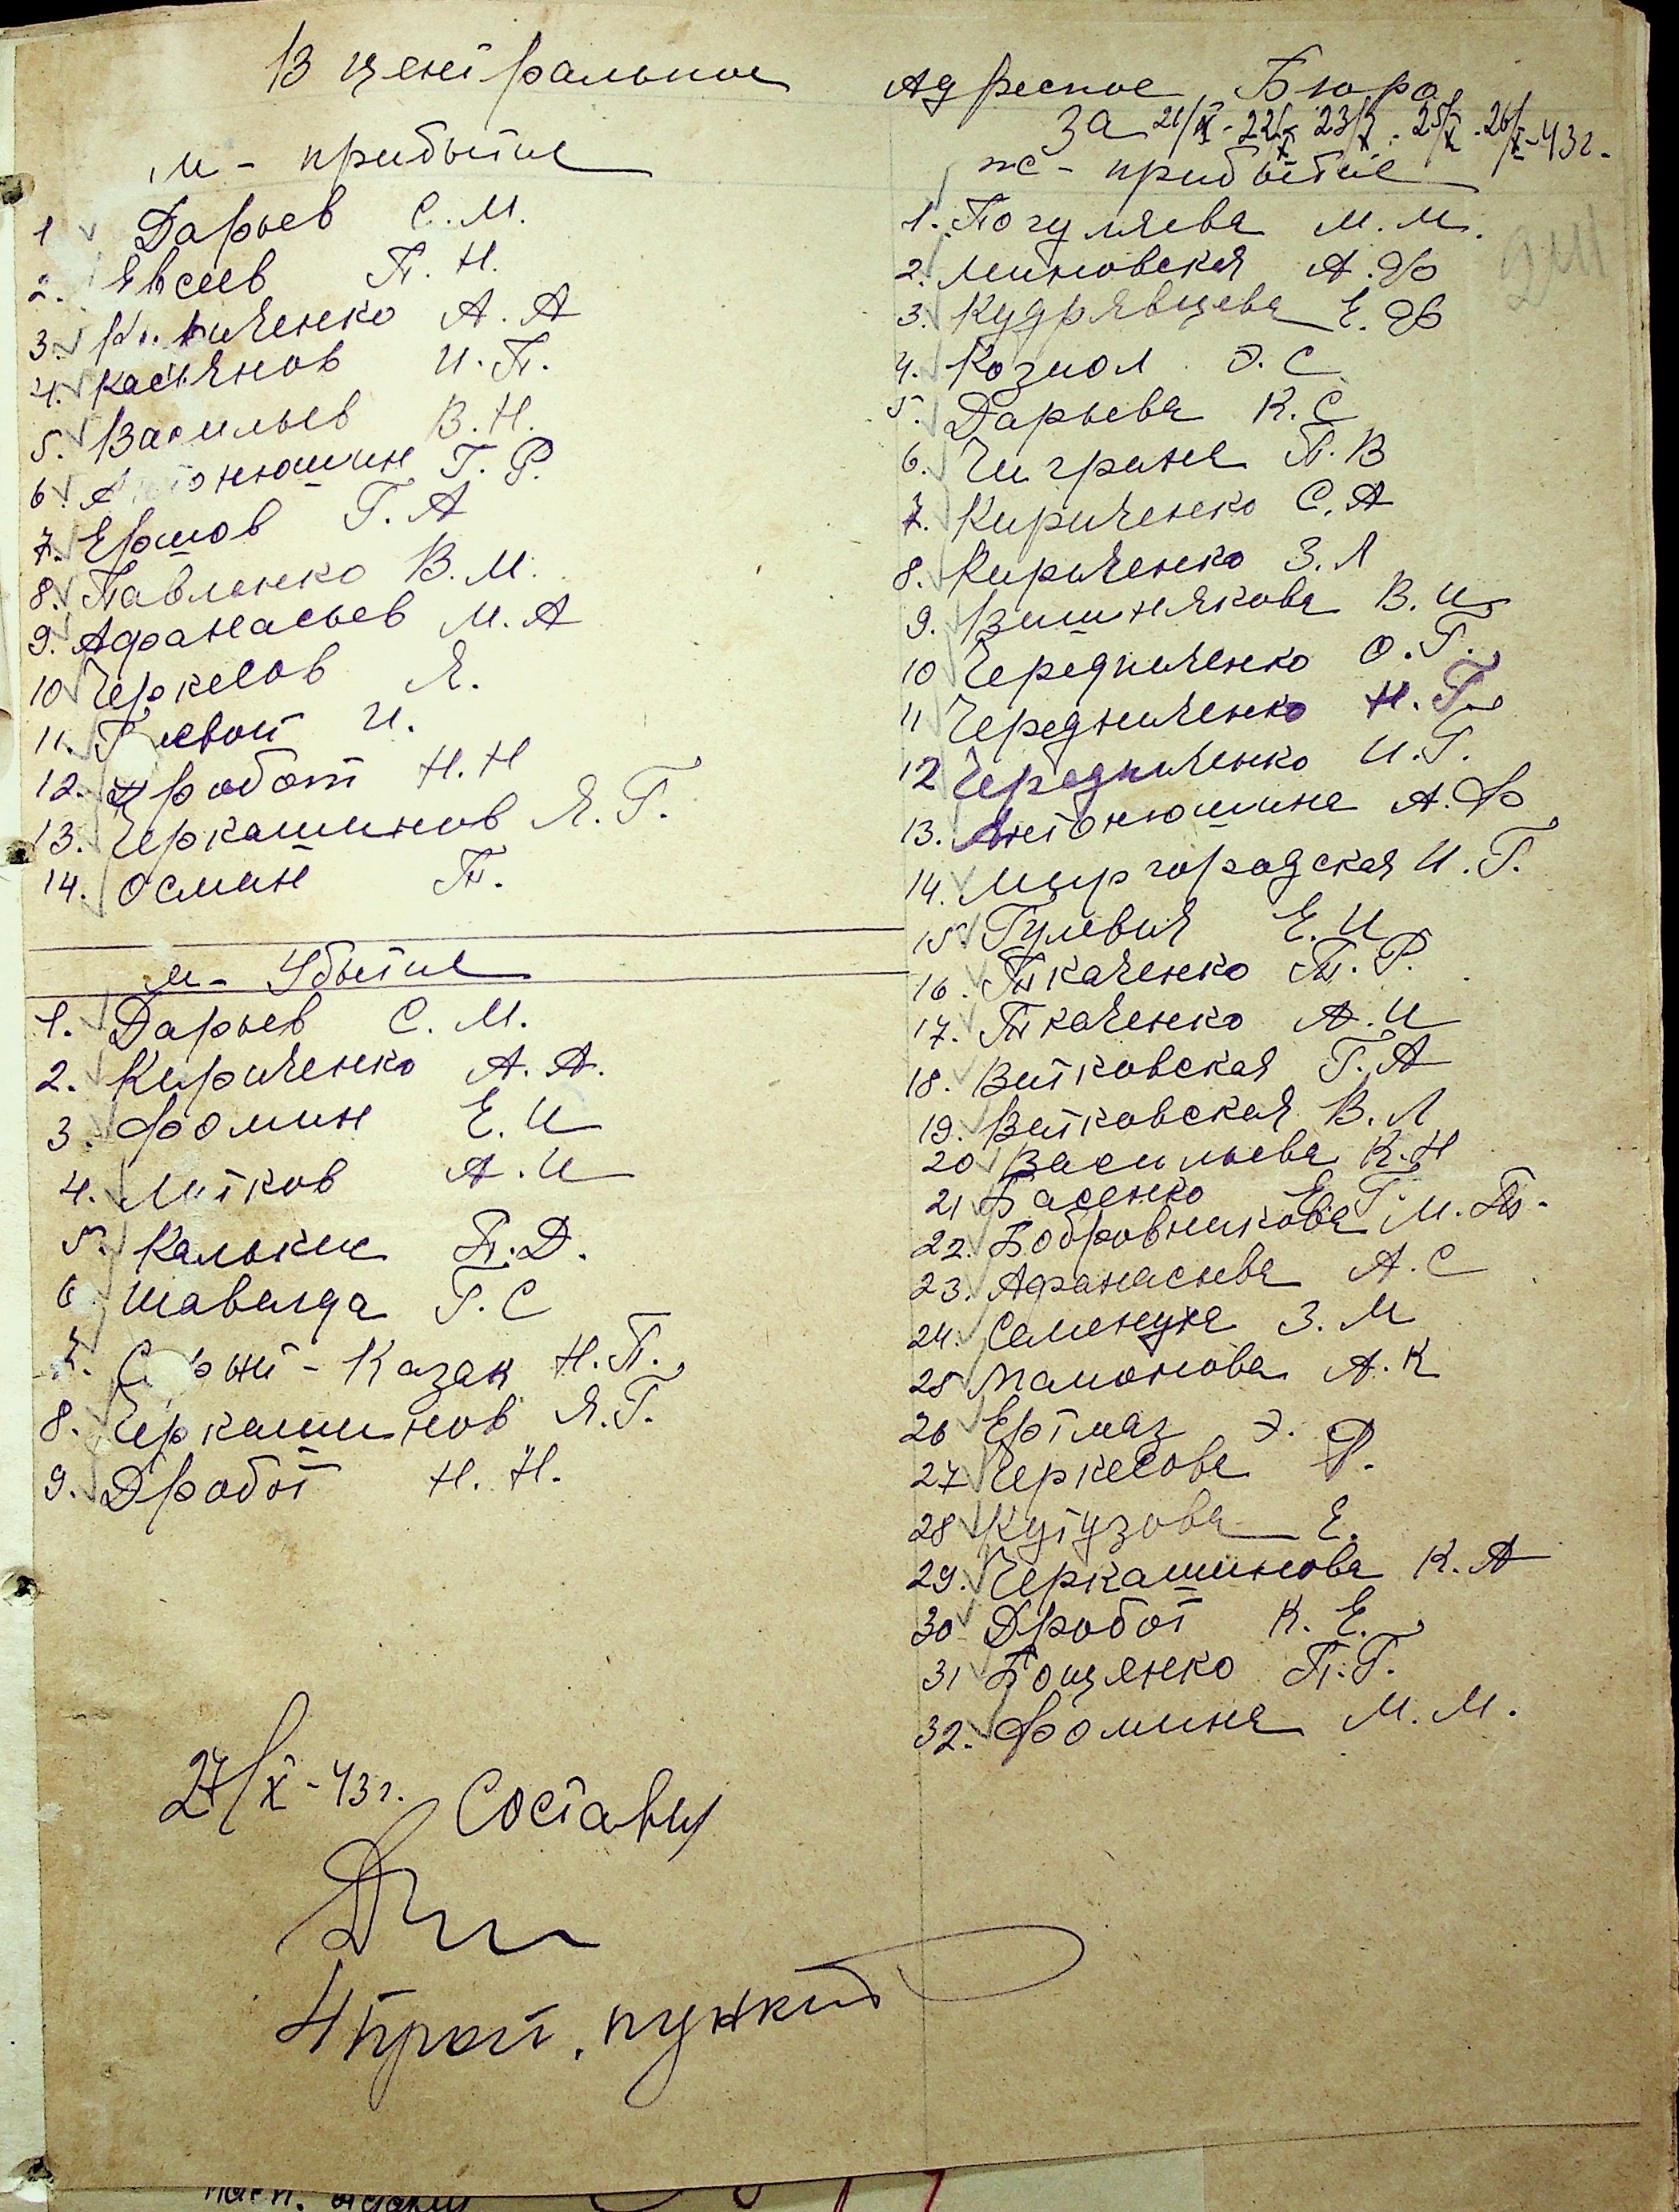 В центральное Адресное Бюро
За 21/X - 22/X 23/X. 25/X. 26/X-43г.
м - прибытие
1 Дарьев С.М.
2. Евсеев П.Н.
3. Кириченко А.А
4. Касьянов И.П.
5. Васильев В.Н.
6 Антонюшин Г.Р.
7. Ершов Г.А
8. Павленко В.М.
9. Афанасьев М.А
10 Черкесов Я.
11. И.
12. Дробот Н.Н
13. Черкашинов Я.Г.
14. Осман Т.
м - Убытие
1. Дарьев С.М.
2. Кириченко А.А.
3. Фомин Е.И
4. Литков А.И
5. Калькин П.Д.
6 Шавалда Г.С
7. - Казак Н.П.
8. Черкашинов Я.Г.
9. Дробот Н.Н.
ж - прибытие
1. Погуляева М.М.
2. Миновская А.Ф
3. Кудрявцева Е.Ф
4. Козиол Э.С
5. Дарьева К.С
6. Чиграна П.В
7. Кириченко С.А
8. Кириченко З.Л
9. Вишнякова В.И
10 Чередниченко О.Г.
11 Чередниченко Н.Г.
12 Чередниченко И.Г.
13. Антонюшина А.Ф
14. Миргородская И.Г.
15 Гулевич Е.И
16. Ткаченко Т.Р.
17. Ткаченко А.И
18. Витковская Г.А
19. Витковская В.Л
20 Васильева К.Н
21 Басенко Е.Г.
22. Бобровникова М.П.
23. Афанасьева А.С
24. Саменуха З.М
25 Мамонова А.К
26 Ертмаз Э.
27 Черкесова Р.
28 Кутузова Е.
29. Черкашинова К.А
30 Дробот К.Е.
31 Бощенко П.Г.
32. Фомина М.М.
27/X-43г. Составил
4 проп. пункт